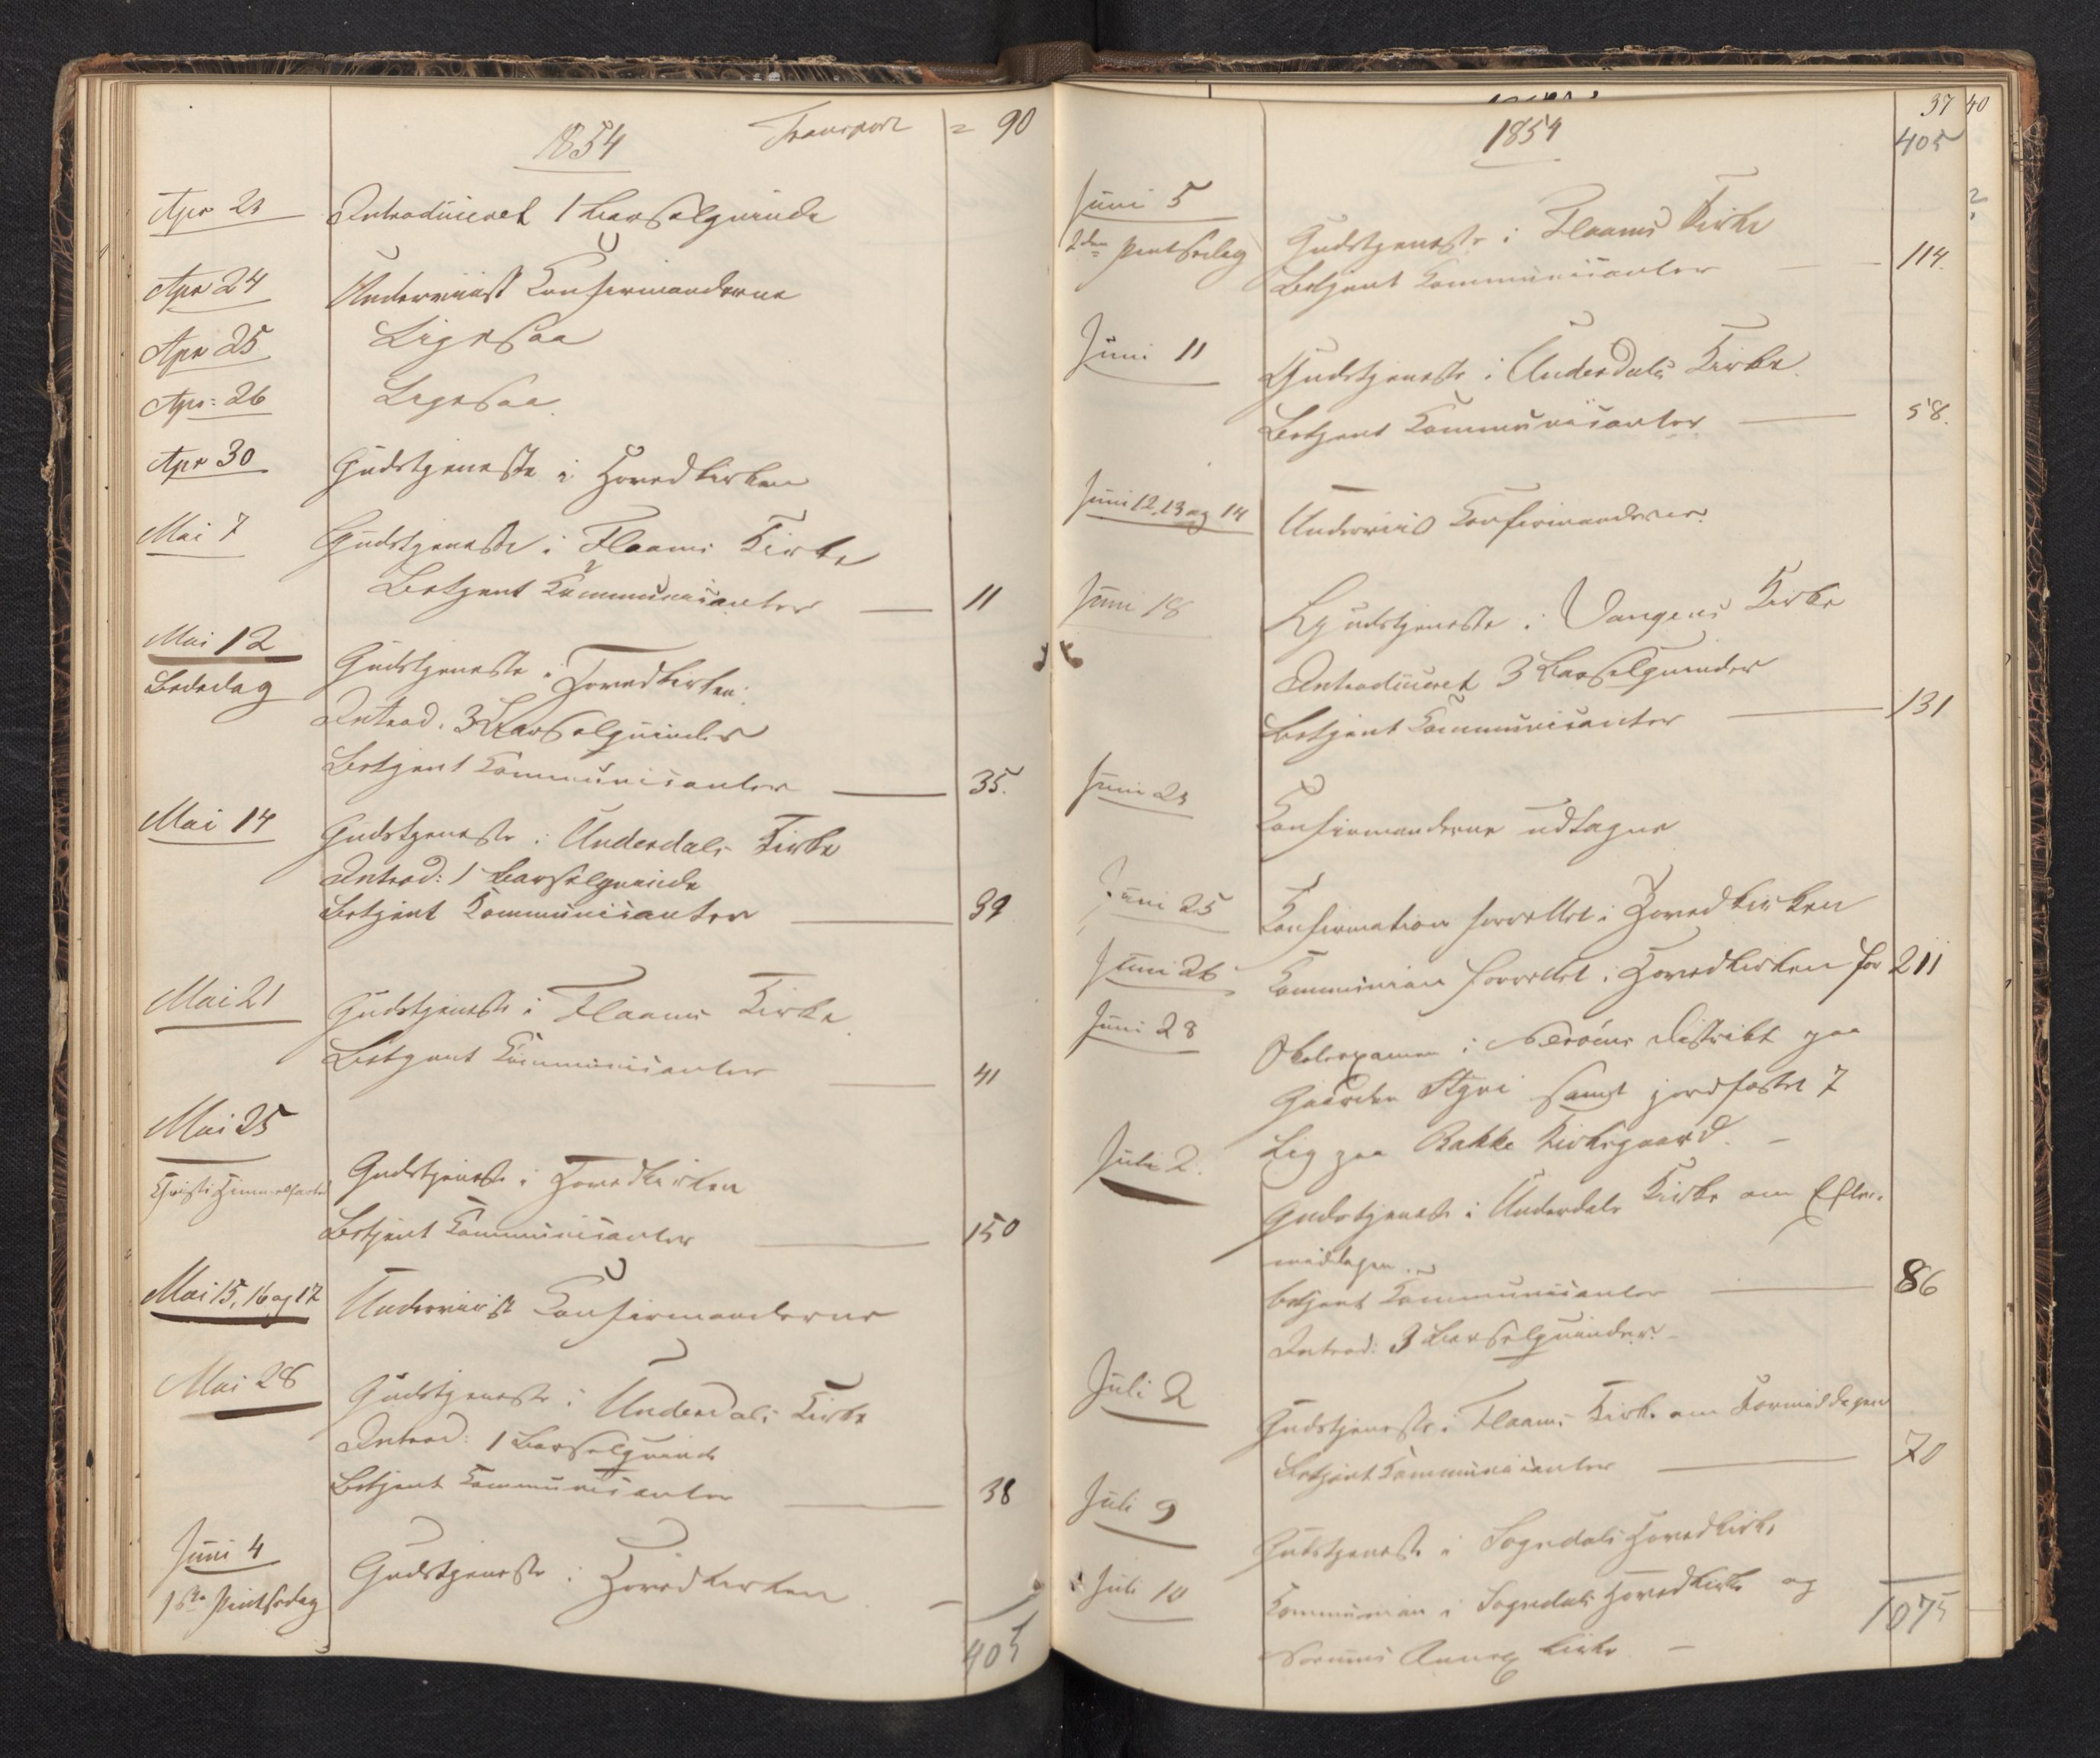 1854 Transport = 90
Apr 23 Introduceret 1 Barselqvinde
Apr 24 Underviist Confirmanderne
Apr 25 Ligesaa
Apr: 26 Ligesaa
Apr 30 Gudstjeneste i Hovedkirken
Mai 7 Gudstjeneste i Flaams Kirke
Betjent Communicanter — 11
Mai 12 Gudstjeneste i Hovedkirken.
Bededag
Introd. 3 Barselqvinder
Betjent Communicanter — 35.
Mai 14 Gudstjeneste i Underdals Kirke
Introd: 1 Barselqvinde
Betjent Communicanter — 39
Mai 21 Gudstjeneste i Flaams Kirke
Betjent Communicanter — 41
Mai 25
Christi Himmelfart Gudstjeneste i Hovedkirken
Betjent Communicanter — 150
Mai 15, 16 og 17 Underviist Confirmanderne
Mai 28 Gudstjeneste i Underdals Kirke
Introd: 1 Barselqvinde
Betjent Communicanter — 38
Juni 4 Gudstjeneste i Hovedkirken —
1ste Pintsedag
405
37 40
1854 405
Juni 5 Gudstjeneste i Flaams Kirke
2den Pintsedag Betjent Communicanter — 114.
?
Juni 11 Gudstjeneste i Underdals Kirke
Betjent Communicanter — 58.
Juni 12, 13 og 14 Underviist Confirmanderne.
Juni 18 Gudstjeneste i Vangens Kirke
Introduceret 3 Barselqvinder
Betjent Communicanter — 131
Juni 23 Confirmanderne udtagne
Juni 25 Confirmation forrettet i Hovedkirken
Juni 26 Communion forrettet i Hovedkirken for 211
Juni 28 Skoleexamen i Nerøens District paa
Gaarden Styvi samt jordfæstet 7
Lig paa Bakke Kirkegaard. —
Juli 2. Gudstjeneste i Underdals Kirke om Efter-
middagen.
betjent Communicanter — 86
Introd: 3 Barselqvinder. —
Juli 2 Gudstjeneste i Flaams Kirke om Formiddagen
Betjent Communicanter — 70
Juli 9 Gudstjeneste i Sogndals Hovedkirke
Juli 10 Communion i Sogndals Hovedkirke og
Norums Annex Kirke —
1075